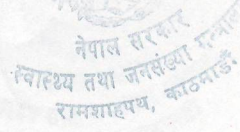 नेपाल सरकार
स्वास्थ्य तथा जनसंख्या मन्त्रालय
रामशाहपथ, काठमाडौँ